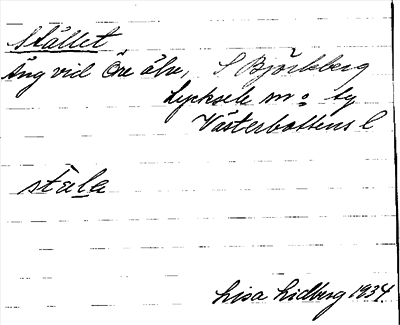 Stället
Äng vid Öre älv, S Björkberg
Lycksele m o ty
Västerbottens l
stäla
Lisa Lidberg 1934.